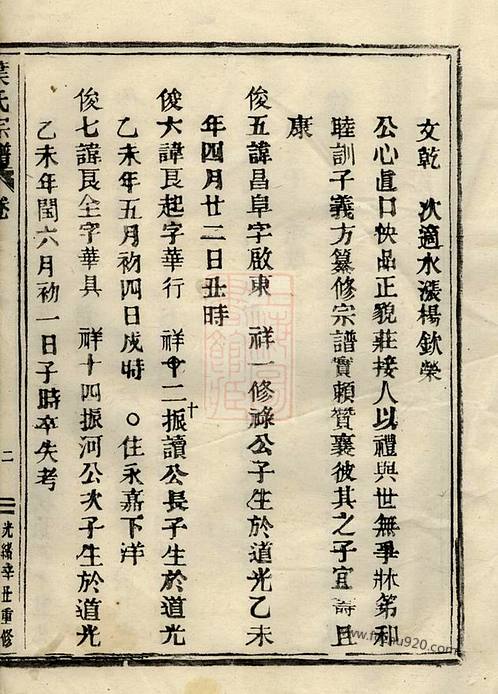 文乾　次適水漲楊欽榮
公心直口快品正貌莊接人以禮與世無爭牀第和
睦訓子義方纂修宗譜實賴贊襄彼其之子宜壽且
康
俊五諱昌阜字啟東　祥一修祿公子生於道光乙未
年四月廿二日丑時
俊六諱艮起字華行　祥十二振讀公長子生於道光
乙未年五月初四日戌時　○住永嘉下洋
俊七諱艮全字華具　祥十四振河公次子生於道光
乙未年閏六月初一日子時卒失考
葉氏宗譜　卷
二
光緒辛丑重修
www.fushu920.com